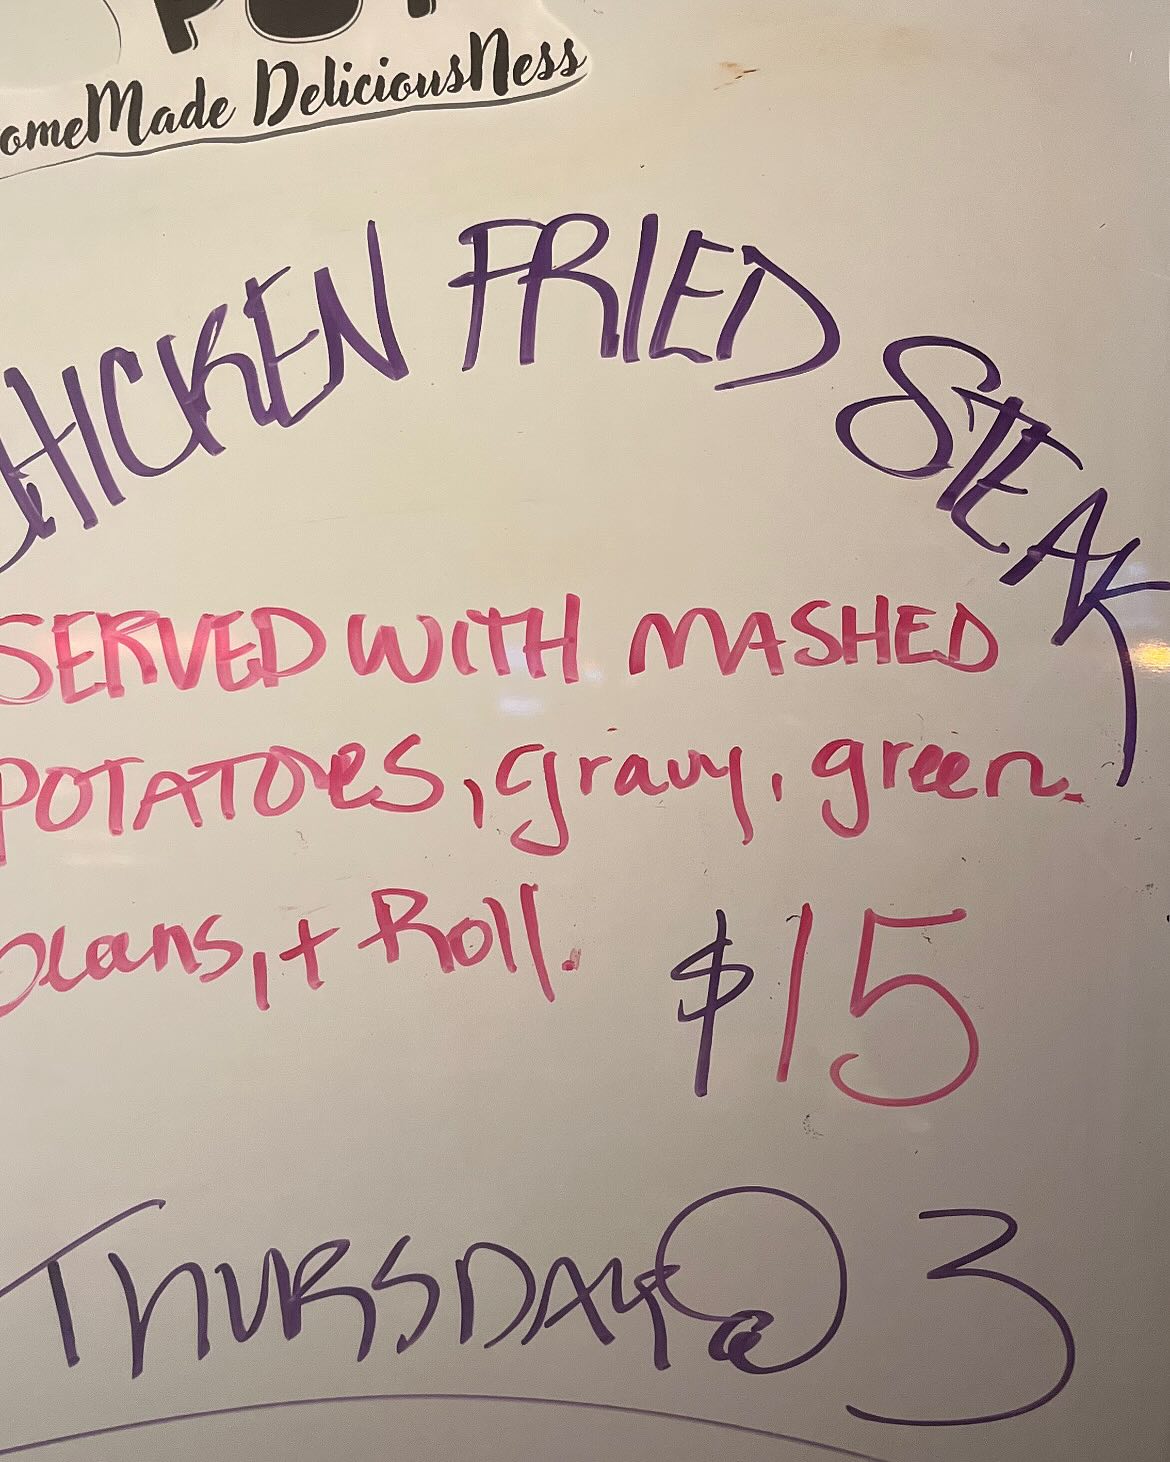 POT
omeMade DeliciousNess
CHICKEN FRIED STEAK
SERVED WITH MASHED
POTATOES, gravy, green
beans, + Roll.
$15
THURSDAY @ 3